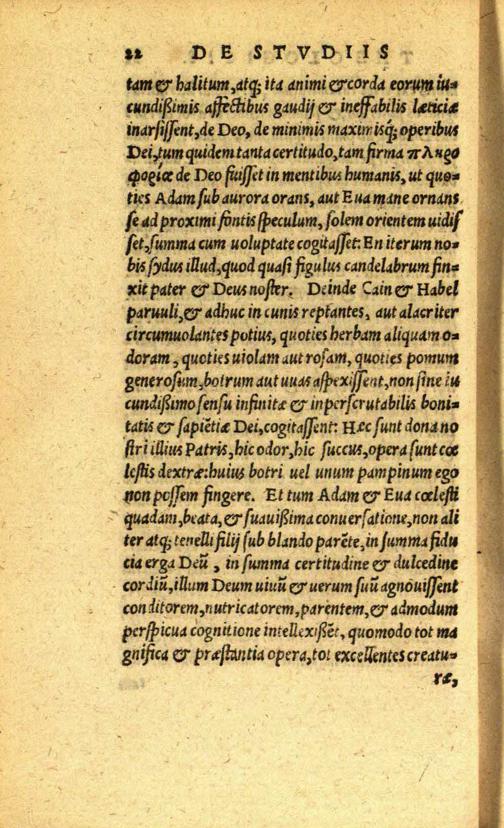 22 DE STVDIIS
tam & halitum, atq; ita animi & corda eorum iu-
cundißimis affectibus gaudij & ineffabilis lætitiæ
inarsissent, de Deo, de minimis maximisq; operibus
Dei, tum quidem tanta certitudo, tam firma πληρο
φορίας de Deo fuisset in mentibus humanis, ut quo-
ties Adam sub aurora orans, aut Eua mane ornans
se ad proximi fontis speculum, solem orientem uidis
set, summa cum uoluptate cogitasset: En iterum no-
bis sydus illud, quod quasi figulus candelabrum fin-
xit pater & Deus noster. Deinde Cain & Habel
paruuli, & adhuc in cunis reptantes, aut alacriter
circumuolantes potius, quoties herbam aliquam o-
doram, quoties uiolam aut rosam, quoties pomum
generosum, botrum aut uuas aspexissent, non sine iu
cundißimo sensu infinitæ & inperscrutabilis boni-
tatis & sapiẽtiæ Dei, cogitassent: Hæc sunt dona no
stri illius Patris, hic odor, hic succus, opera sunt cœ
lestis dextræ: huius botri uel unum pampinum ego
non possem fingere. Et tum Adam & Eua cœlesti
quadam, beata, & suauißima conuersatione, non ali
ter atq; tenelli filij sub blando parẽte, in summa fidu
cia erga Deũ, in summa certitudine & dulcedine
cordiũ, illum Deum uiuũ & uerum suũ agnouissent
conditorem, nutricatorem, parentem, & admodum
perspicua cognitione intellexißẽt, quomodo tot ma
gnifica & præstantia opera, tot excellentes creatu-
ræ,